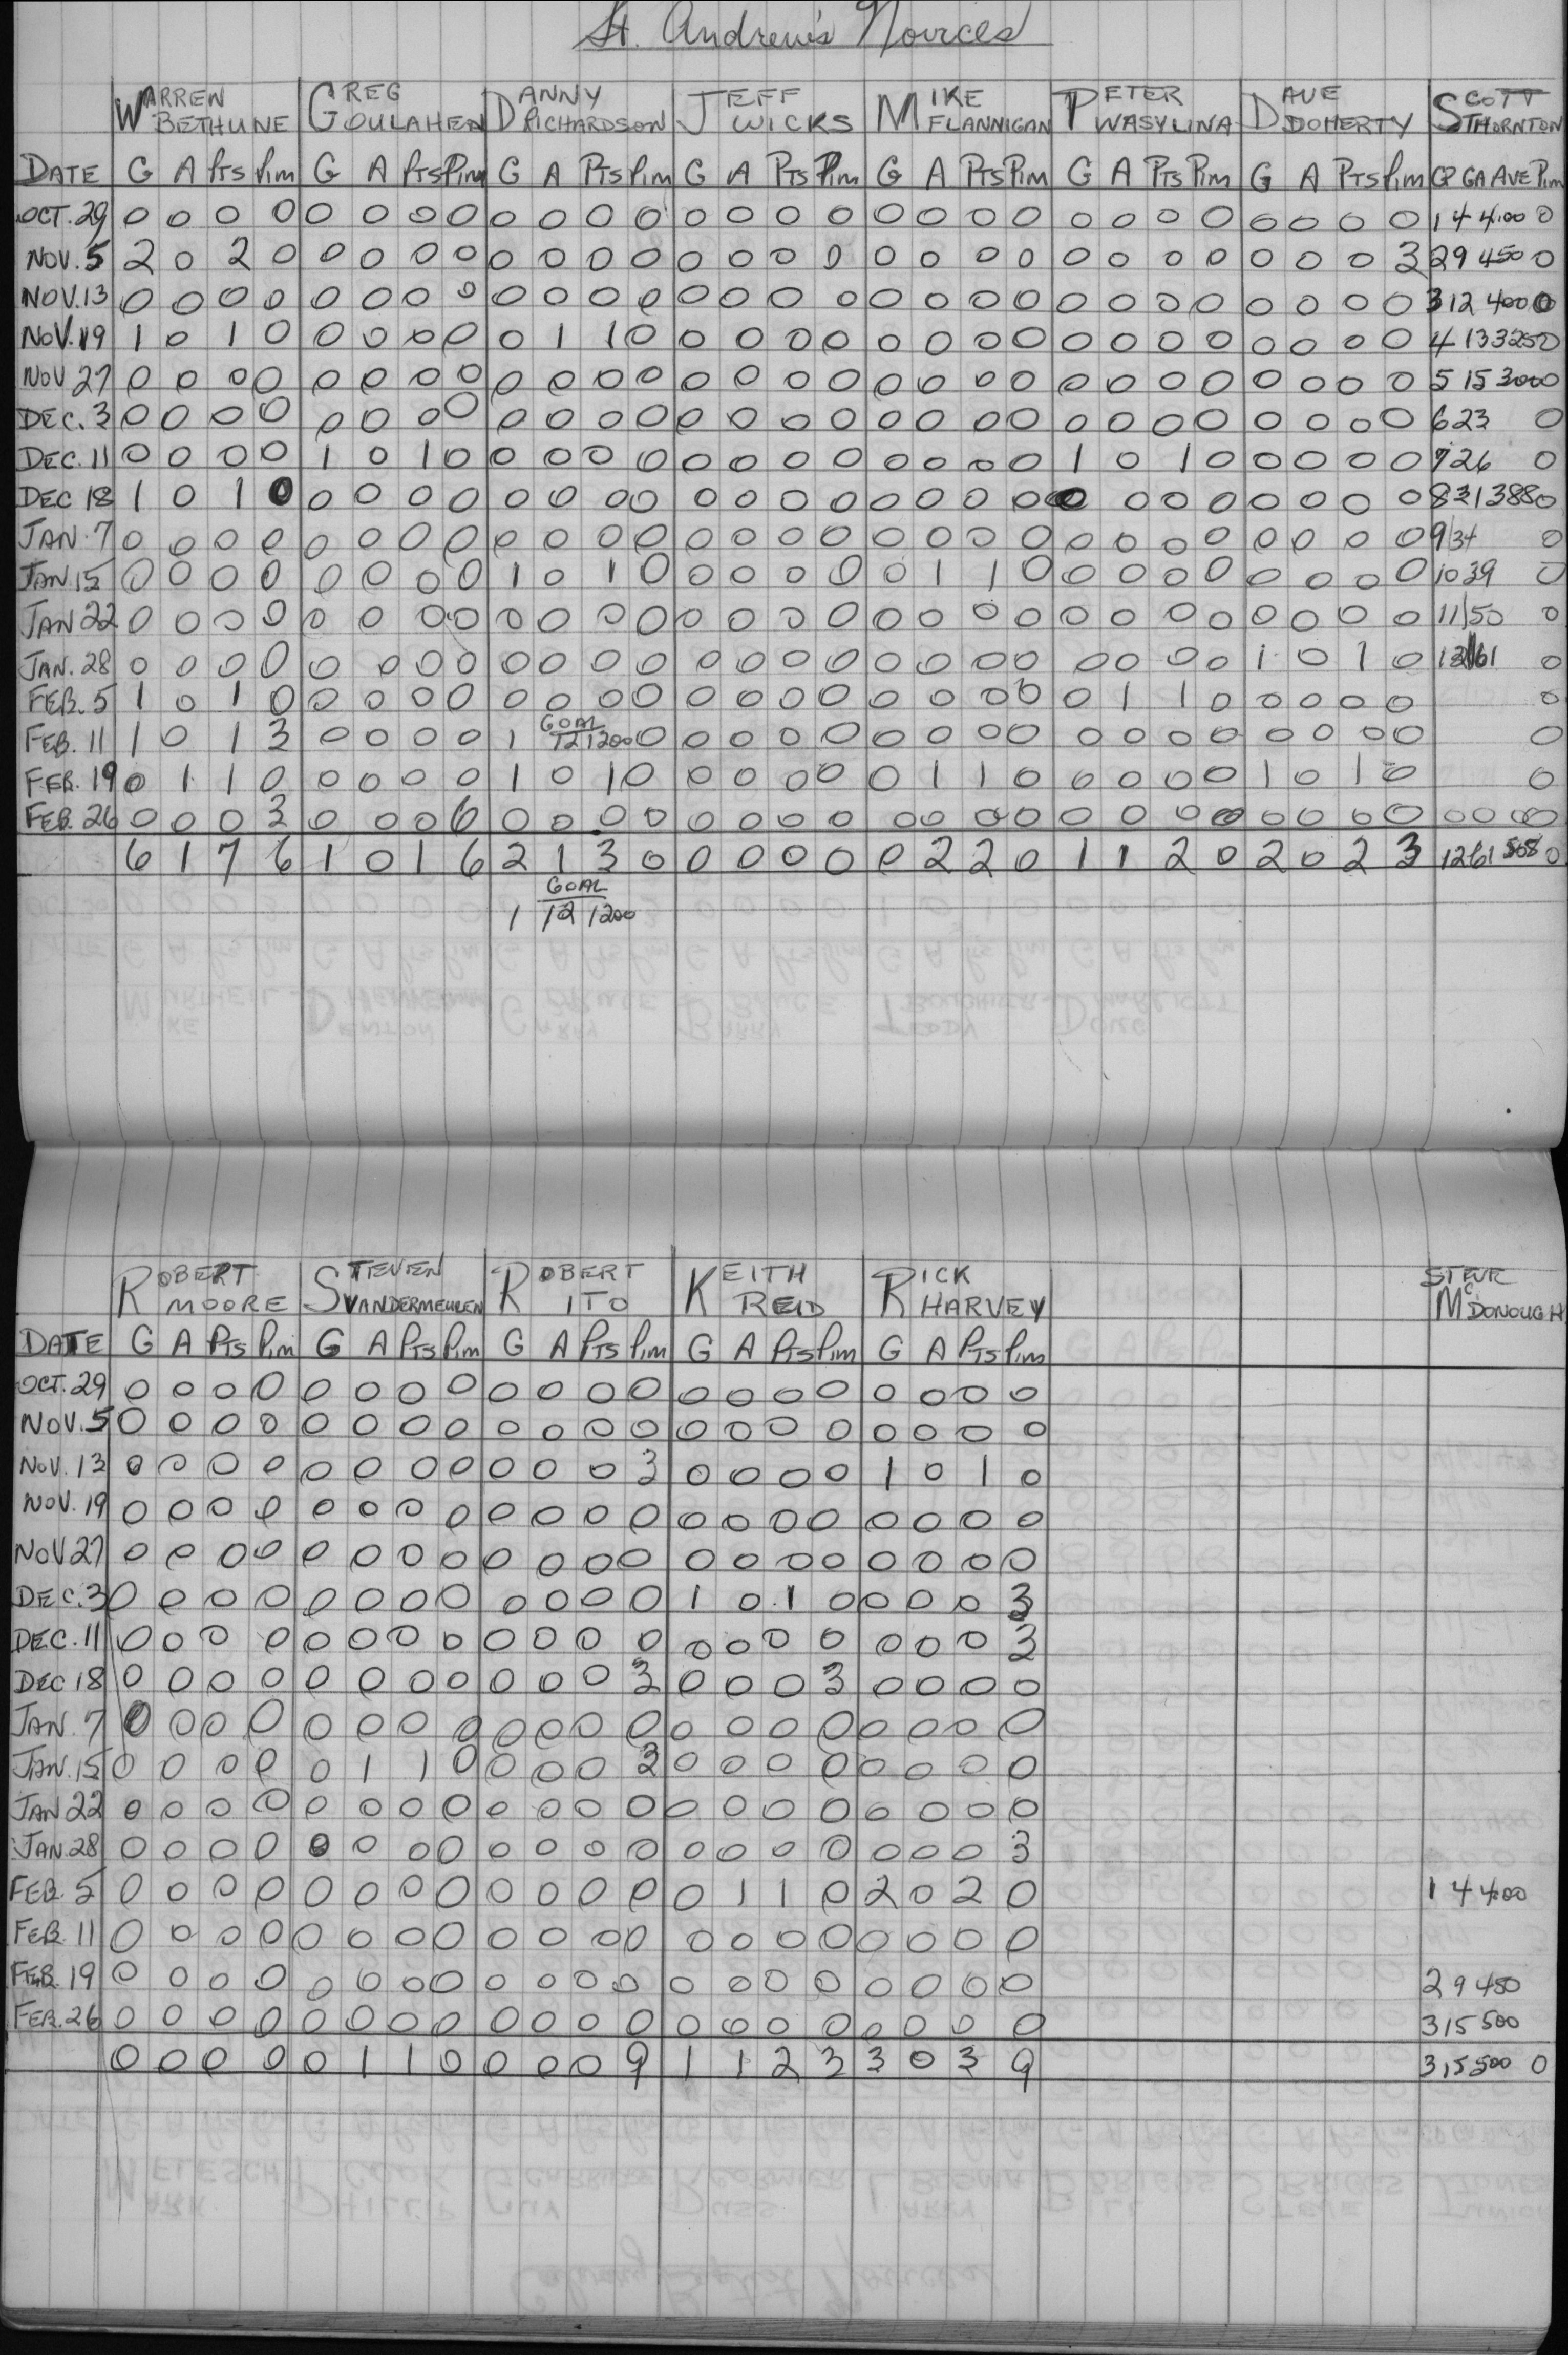 St. Andrew's Novices
WARREN BETHUNE GREG GOULAHEN DANNY RICHARDSON JEFF WICKS MIKE FLANNIGAN PETER WASYLINA DAVE DOHERTY SCOTT THORNTON
DATE G A Pts Pim G A Pts Pim G A Pts Pim G A Pts Pim G A Pts Pim G A Pts Pim G A Pts Pim GP GA AVE Pim
OCT. 29 0 0 0 0 0 0 0 0 0 0 0 0 0 0 0 0 0 0 0 0 0 0 0 0 0 0 0 0 1 4 4.00 0
NOV. 5 2 0 2 0 0 0 0 0 0 0 0 0 0 0 0 0 0 0 0 0 0 0 0 0 0 0 0 3 2 9 450 0
NOV. 13 0 0 0 0 0 0 0 0 0 0 0 0 0 0 0 0 0 0 0 0 0 0 0 0 0 0 0 0 3 12 400 0
NOV. 19 1 0 1 0 0 0 0 0 0 1 1 0 0 0 0 0 0 0 0 0 0 0 0 0 0 0 0 0 4 13 325 0
NOV 27 0 0 0 0 0 0 0 0 0 0 0 0 0 0 0 0 0 0 0 0 0 0 0 0 0 0 0 0 5 15 300 0
DEC. 3 0 0 0 0 0 0 0 0 0 0 0 0 0 0 0 0 0 0 0 0 0 0 0 0 0 0 0 0 6 23 0
DEC. 11 0 0 0 0 1 0 1 0 0 0 0 0 0 0 0 0 0 0 0 0 1 0 1 0 0 0 0 0 7 26 0
DEC 18 1 0 1 0 0 0 0 0 0 0 0 0 0 0 0 0 0 0 0 0 0 0 0 0 0 0 0 0 8 31 388 0
JAN. 7 0 0 0 0 0 0 0 0 0 0 0 0 0 0 0 0 0 0 0 0 0 0 0 0 0 0 0 0 9 34 0
JAN. 15 0 0 0 0 0 0 0 0 1 0 1 0 0 0 0 0 0 1 1 0 0 0 0 0 0 0 0 0 10 39 0
JAN 22 0 0 0 0 0 0 0 0 0 0 0 0 0 0 0 0 0 0 0 0 0 0 0 0 0 0 0 0 11 50 0
JAN. 28 0 0 0 0 0 0 0 0 0 0 0 0 0 0 0 0 0 0 0 0 0 0 0 0 1 0 1 0 12 61 0
FEB. 5 1 0 1 0 0 0 0 0 0 0 0 0 0 0 0 0 0 0 0 0 0 1 1 0 0 0 0 0 0
FEB. 11 1 0 1 3 0 0 0 0 1 GOAL 12 1200 0 0 0 0 0 0 0 0 0 0 0 0 0 0 0 0 0 0
FEB. 19 0 1 1 0 0 0 0 0 1 0 1 0 0 0 0 0 0 1 1 0 0 0 0 0 1 0 1 0 0
FEB. 26 0 0 0 3 0 0 0 6 0 0 0 0 0 0 0 0 0 0 0 0 0 0 0 0 0 0 0 0 0 0 0 0
6 1 7 6 1 0 1 6 2 1 3 0 0 0 0 0 0 2 2 0 1 1 2 0 2 0 2 3 12 61 508 0
GOAL
1 12 1200
ROBERT MOORE STEVEN VANDERMEULEN ROBERT ITO KEITH REID RICK HARVEY STEVE McDONOUGH
DATE G A Pts Pim G A Pts Pim G A Pts Pim G A Pts Pim G A Pts Pim
OCT. 29 0 0 0 0 0 0 0 0 0 0 0 0 0 0 0 0 0 0 0 0
NOV. 5 0 0 0 0 0 0 0 0 0 0 0 0 0 0 0 0 0 0 0 0
NOV. 13 0 0 0 0 0 0 0 0 0 0 0 3 0 0 0 0 1 0 1 0
NOV. 19 0 0 0 0 0 0 0 0 0 0 0 0 0 0 0 0 0 0 0 0
NOV 27 0 0 0 0 0 0 0 0 0 0 0 0 0 0 0 0 0 0 0 0
DEC. 3 0 0 0 0 0 0 0 0 0 0 0 0 1 0 1 0 0 0 0 3
DEC. 11 0 0 0 0 0 0 0 0 0 0 0 0 0 0 0 0 0 0 0 3
DEC 18 0 0 0 0 0 0 0 0 0 0 0 3 0 0 0 3 0 0 0 0
JAN. 7 0 0 0 0 0 0 0 0 0 0 0 0 0 0 0 0 0 0 0 0
JAN. 15 0 0 0 0 0 1 1 0 0 0 0 3 0 0 0 0 0 0 0 0
JAN 22 0 0 0 0 0 0 0 0 0 0 0 0 0 0 0 0 0 0 0 0
JAN. 28 0 0 0 0 0 0 0 0 0 0 0 0 0 0 0 0 0 0 0 3
FEB. 5 0 0 0 0 0 0 0 0 0 0 0 0 0 1 1 0 2 0 2 0 1 4 4.00
FEB. 11 0 0 0 0 0 0 0 0 0 0 0 0 0 0 0 0 0 0 0 0
FEB. 19 0 0 0 0 0 0 0 0 0 0 0 0 0 0 0 0 0 0 0 0 2 9 450
FEB. 26 0 0 0 0 0 0 0 0 0 0 0 0 0 0 0 0 0 0 0 0 3 15 500
0 0 0 0 0 1 1 0 0 0 0 9 1 1 2 3 3 0 3 9 3 15 500 0